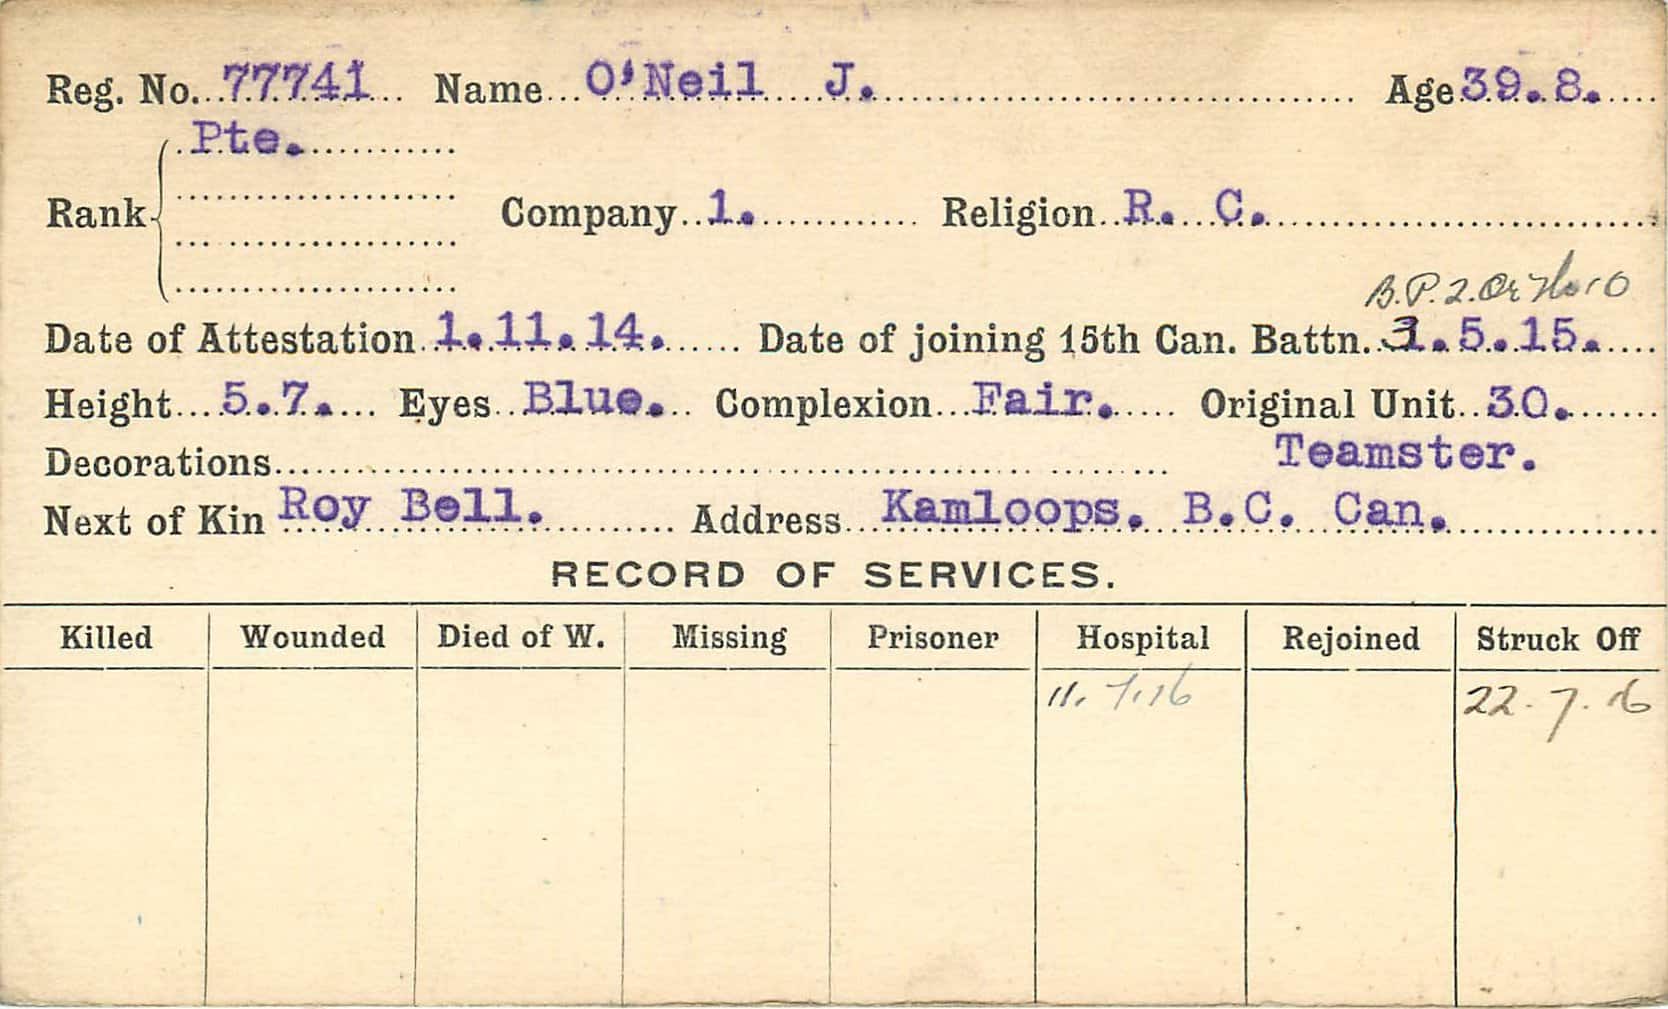 Reg. No. 77741 Name O'Neil J. Age 39.8.
Pte.
Rank Company 1. Religion R. C.
B.P.2.Or
Date of Attestation 1.11.14. Date of joining 15th Can. Battn. 3.5.15.
Height 5.7. Eyes Blue. Complexion Fair. Original Unit 30.
Decorations Teamster.
Next of Kin Roy Bell. Address Kamloops. B.C. Can.
RECORD OF SERVICES.
Killed Wounded Died of W. Missing Prisoner Hospital Rejoined Struck Off
11.7.16 22.7.16